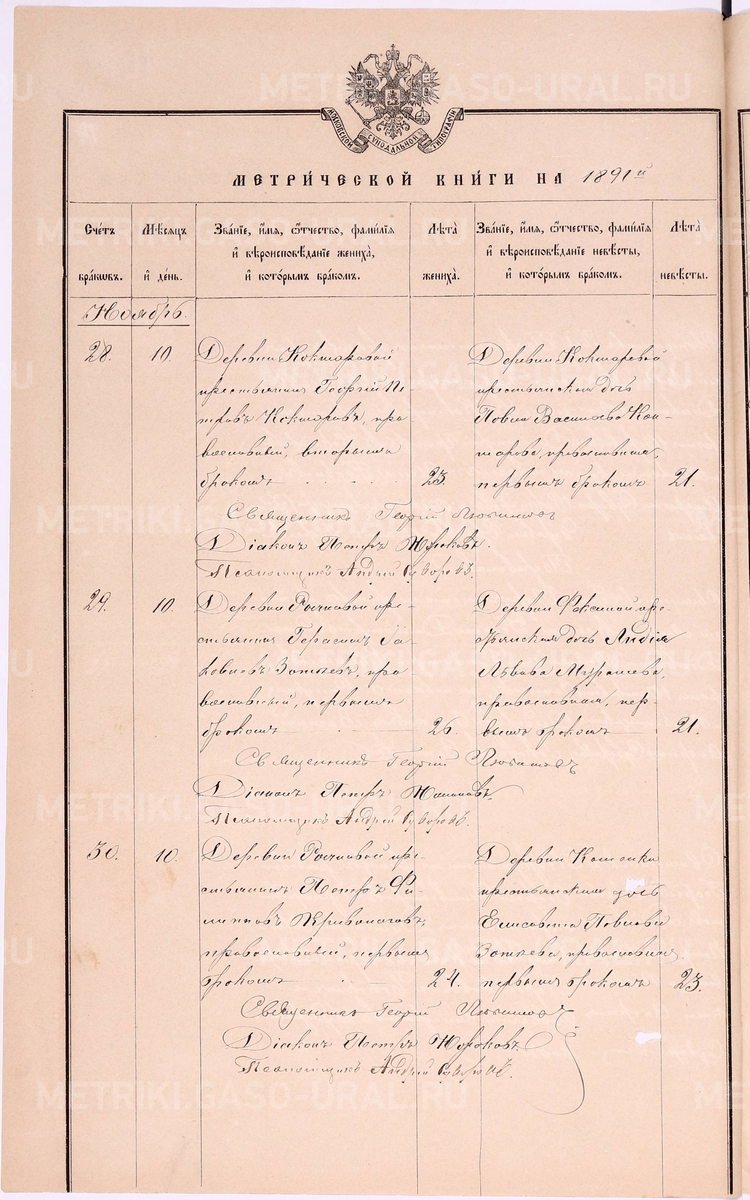 МОСКОВСКОЙ СѴНОДАЛЬНОЙ ТИПОГРАФІИ
МЕТРИЧЕСКОЙ КНИГИ НА 1891й
Счетъ браковъ.
Мѣсяцъ и день.
Званіе, имя, отчество, фамилія и вѣроисповѣданіе жениха, и которымъ бракомъ.
Лѣта жениха.
Званіе, имя, отчество, фамилія и вѣроисповѣданіе невѣсты, и которымъ бракомъ.
Лѣта невѣсты.
Ноябрь.
28. 10.
Деревни Кокшаровой
крестьянинъ Георгій Пе-
тровъ Кокшаровъ, пра
вославный, вторымъ
бракомъ 23.
Деревни Кокшаровой
крестьянская дочь
Васильева Кок-
шарова, православная,
первымъ бракомъ 21.
Священникъ Георгій Любимовъ
Діаконъ Петръ
Псаломщикъ Андрей Суворовъ.
29. 10.
Деревни кре-
стьянинъ Герасимъ Іа-
ковлевъ Зотеевъ, пра
вославный, первымъ
бракомъ 26.
Деревни кре-
стьянская дочь Лидія
Львова
православная, пер-
вымъ бракомъ 21.
Священникъ Георгій Любимовъ
Діаконъ Петръ
Псаломщикъ Андрей Суворовъ.
30. 10.
Деревни кре-
стьянинъ Петръ Фи-
липповъ Кривоноговъ,
православный, первымъ
бракомъ 24.
Деревни
крестьянская дочь
Елисавета Павлова
Зотеева, православная
первымъ бракомъ 23.
Священникъ Георгій Любимовъ
Діаконъ Петръ
Псаломщикъ Андрей Суворовъ.
METRIKI.GASO-URAL.RU